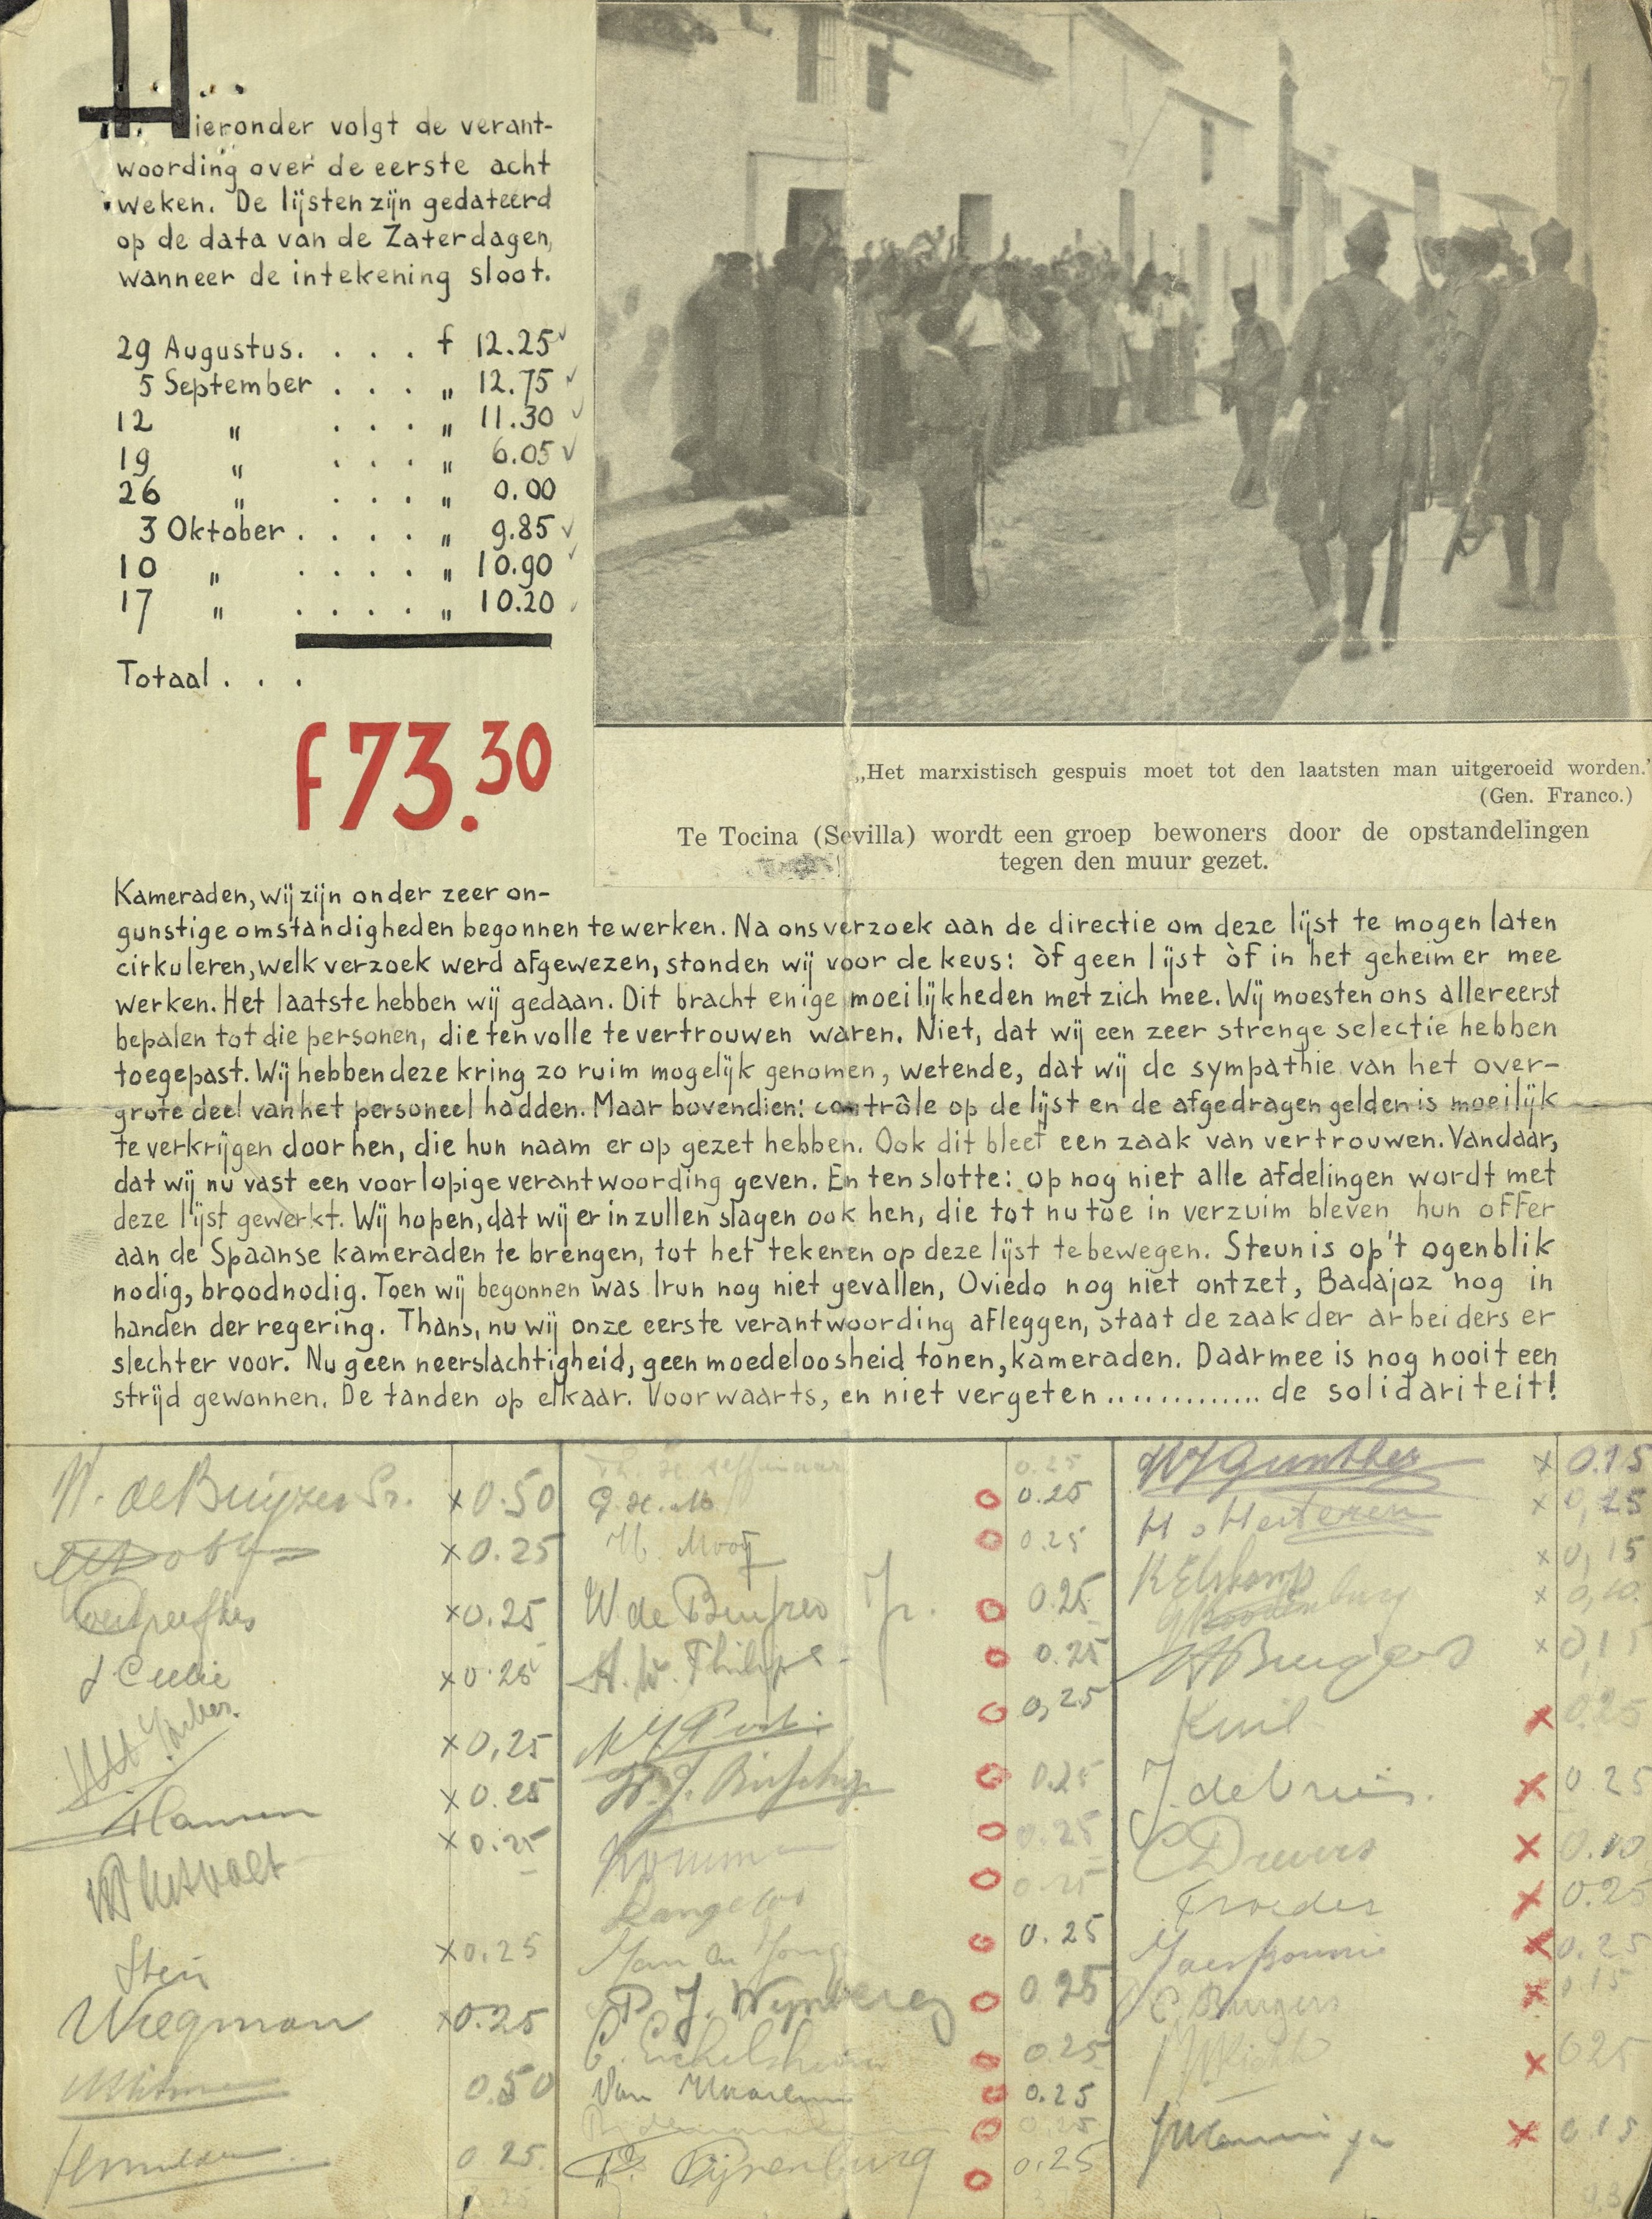 Hieronder volgt de verant-
woording over de eerste acht
weken. De lijsten zijn gedateerd
op de data van de Zaterdagen,
wanneer de intekening sloot.
29 Augustus. . . . f 12.25
5 September . . . „ 12.75
12 „ . . . „ 11.30
19 „ . . . „ 6.05
26 „ . . . „ 0.00
3 Oktober . . . . „ 9.85
10 „ . . . . „ 10.90
17 „ . . . . „ 10.20
Totaal . . .
f 73.30
„Het marxistisch gespuis moet tot den laatsten man uitgeroeid worden.”
(Gen. Franco.)
Te Tocina (Sevilla) wordt een groep bewoners door de opstandelingen
tegen den muur gezet.
Kameraden, wij zijn onder zeer on-
gunstige omstandigheden begonnen te werken. Na ons verzoek aan de directie om deze lijst te mogen laten
cirkuleren, welk verzoek werd afgewezen, stonden wij voor de keus: òf geen lijst òf in het geheim er mee
werken. Het laatste hebben wij gedaan. Dit bracht enige moeilijkheden met zich mee. Wij moesten ons allereerst
bepalen tot die personen, die ten volle te vertrouwen waren. Niet, dat wij een zeer strenge selectie hebben
toegepast. Wij hebben deze kring zo ruim mogelijk genomen, wetende, dat wij de sympathie van het over-
grote deel van het personeel hadden. Maar bovendien: contrôle op de lijst en de afgedragen gelden is moeilijk
te verkrijgen door hen, die hun naam er op gezet hebben. Ook dit bleef een zaak van vertrouwen. Vandaar,
dat wij nu vast een voorlopige verantwoording geven. En ten slotte: op nog niet alle afdelingen wordt met
deze lijst gewerkt. Wij hopen, dat wij er in zullen slagen ook hen, die tot nu toe in verzuim bleven hun offer
aan de Spaanse kameraden te brengen, tot het tekenen op deze lijst te bewegen. Steun is op 't ogenblik
nodig, broodnodig. Toen wij begonnen was Irun nog niet gevallen, Oviedo nog niet ontzet, Badajoz nog in
handen der regering. Thans, nu wij onze eerste verantwoording afleggen, staat de zaak der arbeiders er
slechter voor. Nu geen neerslachtigheid, geen moedeloosheid tonen, kameraden. Daarmee is nog nooit een
strijd gewonnen. De tanden op elkaar. Voorwaarts, en niet vergeten .............. de solidariteit!
W. de Buyzer Sr. x 0.50
x 0.25
x 0.25
x 0.25
x 0.25
x 0.25
x 0.25
Stein x 0.25
Wiegman x 0.25
0.50
0.25
0.25
0.25
H. Mooij 0.25
W. de Buyzer Jr. 0.25
A. W. Philips 0.25
0,25
0.25
0.25
0.25
0.25
P. J. Wijnberg 0.25
0.25
Van 0.25
0.25
P. Pijnenburg 0.25
Gunther x 0.15
x 0,25
K Elskamp x 0,15
x 0,10
Burgers x 0,15
Kuil x 0.25
J. de Vries. x 0.25
x 0.10
x 0.25
x 0.25
C. Burgers x 0.15
x 0.25
x 0.15